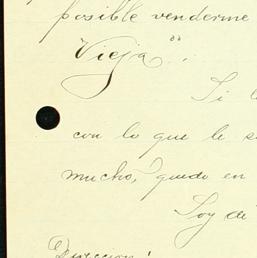 posible venderme
Vieja".
Si
con lo que le
mucho, quedo en
Soy de
Direccion: